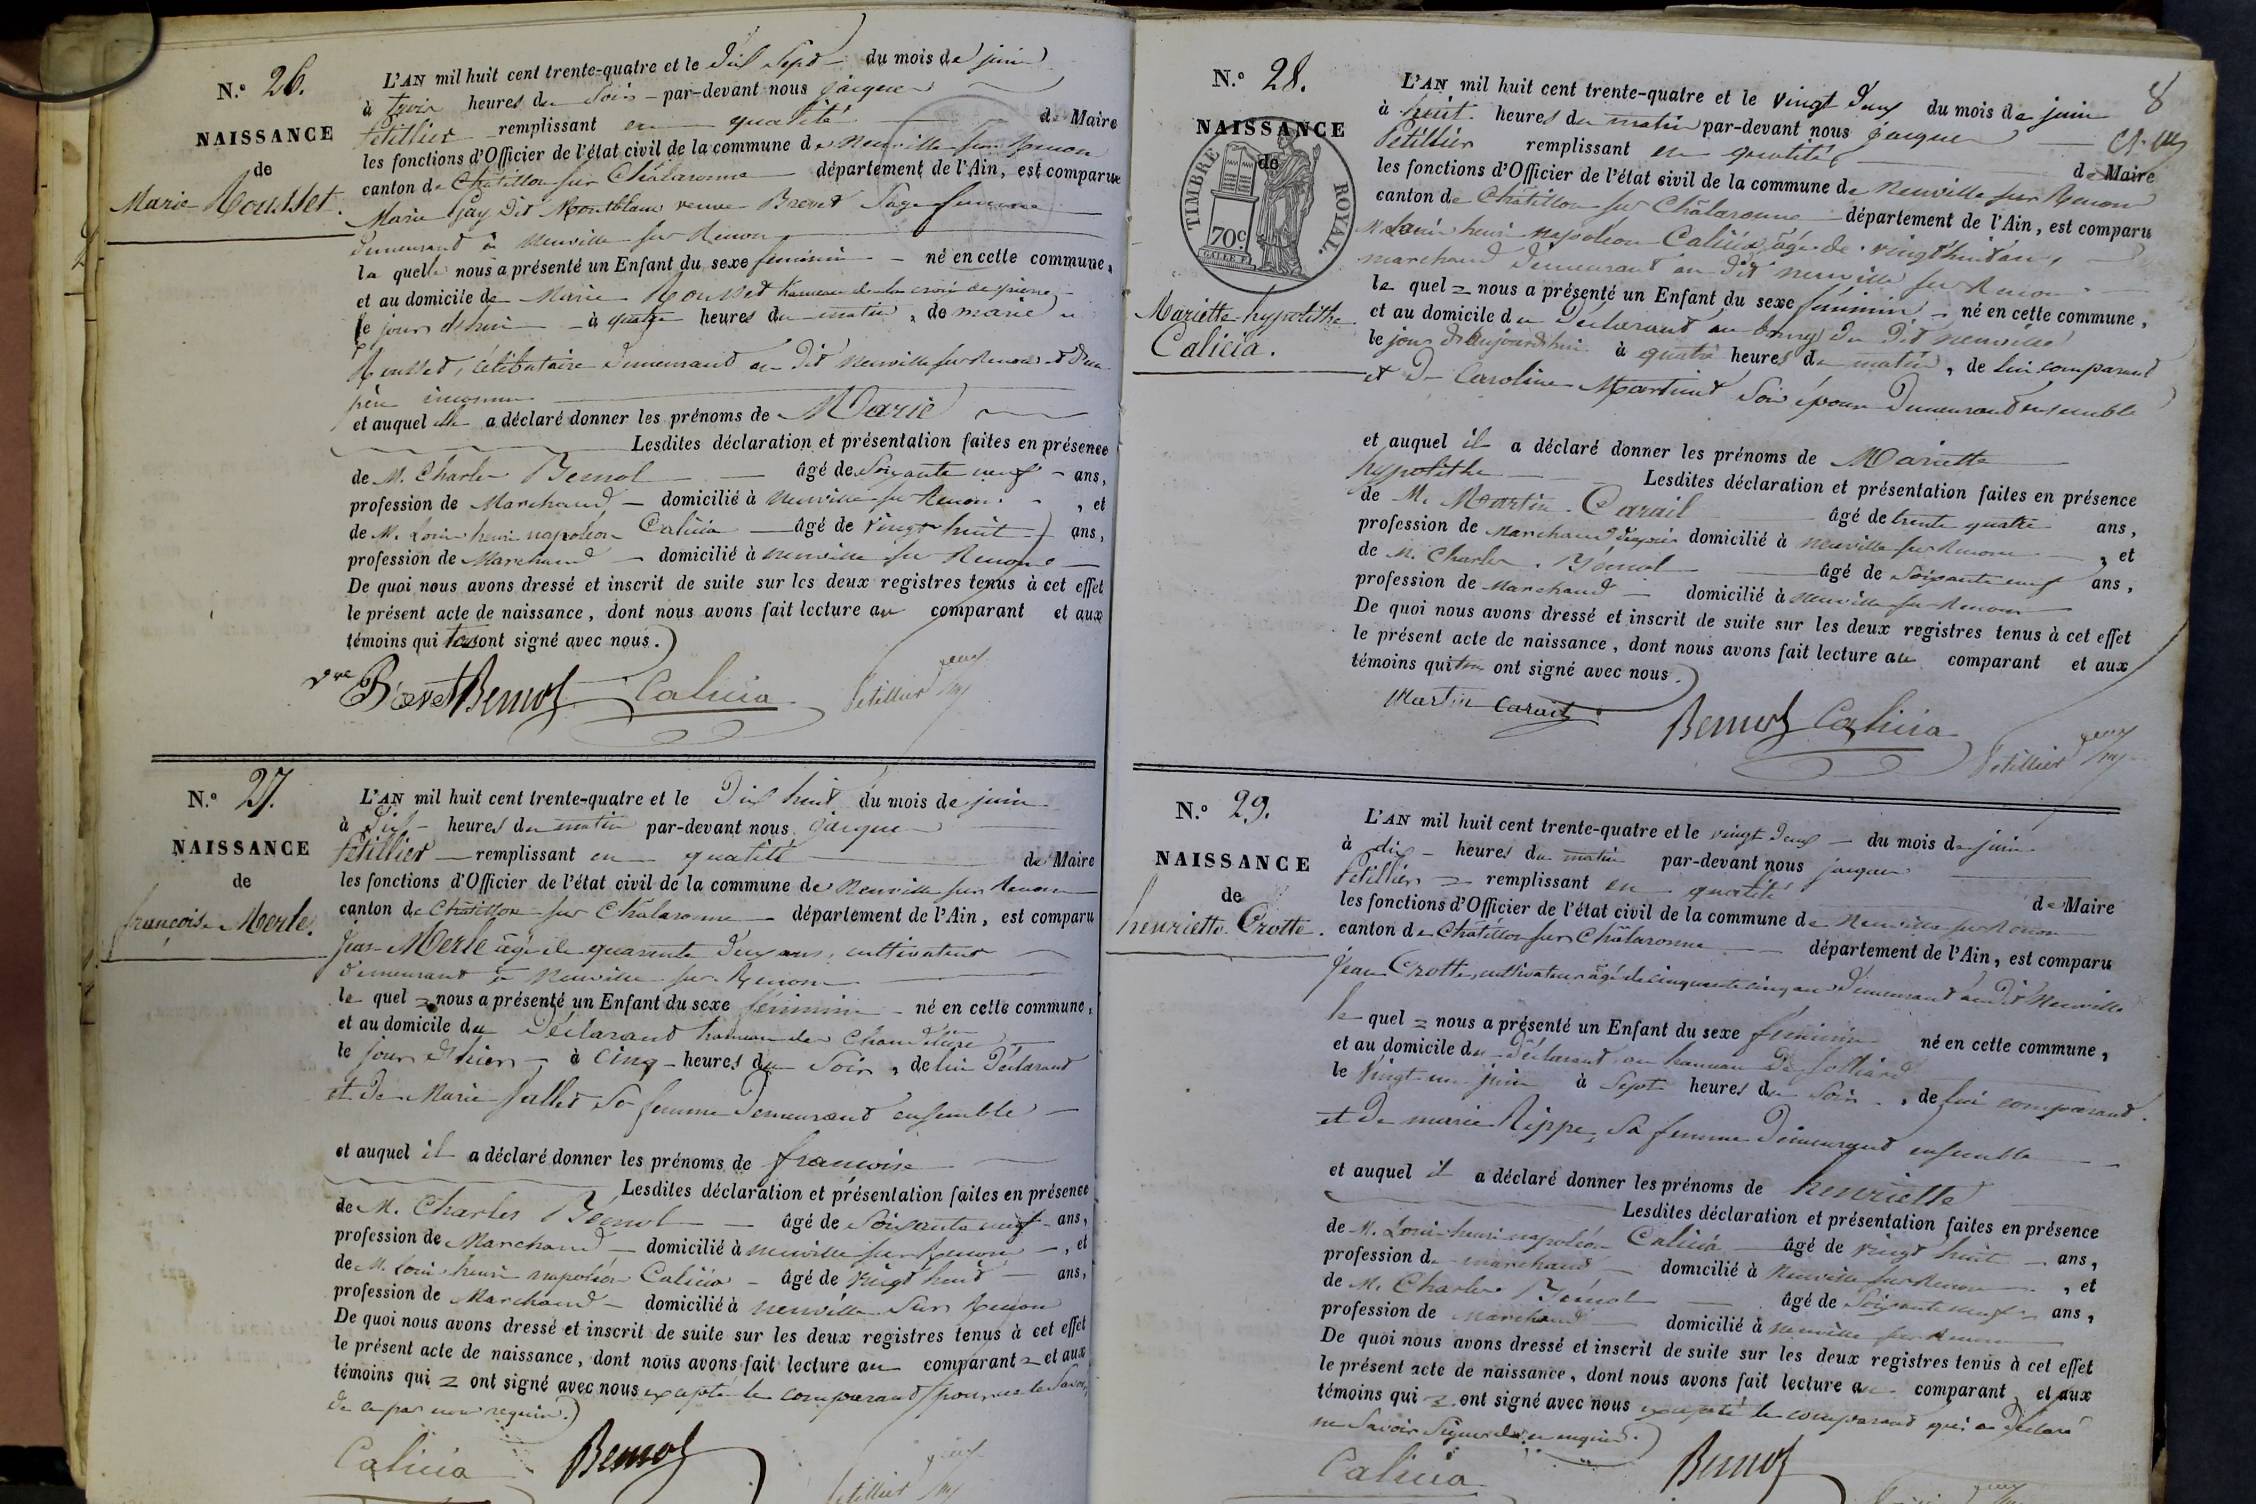 N.° 26.
NAISSANCE
de
Marie Rousset.
L'AN mil huit cent trente-quatre et le dix sept du mois de juin
à trois heures du soir par-devant nous jacques
Petillier remplissant en qualité de Maire
les fonctions d'Officier de l'état civil de la commune de Neuville sur Renon
canton de Châtillon sur Châlaronne département de l'Ain, est comparue
Marie Gay dit Montblanc veuve Brevet Sage femme
demeurant à Neuville sur Renon
la quelle nous a présenté un Enfant du sexe feminin né en cette commune,
et au domicile de Marie Rousset hameau de la croix de pierre
le jour d'hui à quatre heures du matin, de marie
Rousset, célibataire demeurant au dit Neuville sur Renon et d'un
père inconnu
et auquel elle a déclaré donner les prénoms de Marie
Lesdites déclaration et présentation faites en présence
de M. Charles Bernol âgé de soixante neuf ans,
profession de Marchand domicilié à Neuville sur Renon, et
de M. Louis henri napoléon Calicia âgé de vingt huit ans,
profession de Marchand domicilié à neuville sur Renon
De quoi nous avons dressé et inscrit de suite sur les deux registres tenus à cet effet
le présent acte de naissance, dont nous avons fait lecture au comparant et aux
témoins qui tous ont signé avec nous.
vve Brevet Bernol Calicia Petillier
N.° 27.
NAISSANCE
de
françoise Merle.
L'AN mil huit cent trente-quatre et le dix huit du mois de juin
à dix heures du matin par-devant nous jacques
Petillier remplissant en qualité de Maire
les fonctions d'Officier de l'état civil de la commune de Neuville sur Renon
canton de Châtillon sur Châlaronne département de l'Ain, est comparu
Jean Merle âgé de quarante deux ans, cultivateur
demeurant à Neuville sur Renon
le quel nous a présenté un Enfant du sexe féminin né en cette commune,
et au domicile du déclarant hameau de
le jour d'hier à cinq heures du soir, de lui déclarant
et de Marie follet sa femme demeurant ensemble
et auquel il a déclaré donner les prénoms de francoise
Lesdites déclaration et présentation faites en présence
de M. Charles Bernol âgé de soixante neuf ans,
profession de Marchand domicilié à neuville sur Renon, et
de M. Louis henri napoléon Calicia âgé de vingt huit ans,
profession de Marchand domicilié à neuville sur Renon
De quoi nous avons dressé et inscrit de suite sur les deux registres tenus à cet effet
le présent acte de naissance, dont nous avons fait lecture au comparant et aux
témoins qui ont signé avec nous excepté le comparant pour ne le savoir,
de ce par nous requis.
Calicia Bernol Petillier
8
N.° 28.
NAISSANCE
de
TIMBRE ROYAL.
70c.
Mariette hypolithe
Calicia.
L'AN mil huit cent trente-quatre et le vingt deux du mois de juin
à huit heures du matin par-devant nous jacques
Petillier remplissant en qualité de Maire
les fonctions d'Officier de l'état civil de la commune de Neuville sur Renon
canton de Châtillon sur Châlaronne département de l'Ain, est comparu
M. Louis henri napoléon Calicia, âgé de vingt huit ans,
marchand demeurant au dit neuville sur Renon
le quel nous a présenté un Enfant du sexe féminin né en cette commune,
et au domicile du déclarant au bourg du dit neuville
le jour d'aujourdhui à quatre heures du matin, de lui comparant
et de Caroline Martinet son épouse demeurant ensemble
et auquel il a déclaré donner les prénoms de Mariette
hypolithe Lesdites déclaration et présentation faites en présence
de M. Martin Carail âgé de trente quatre ans,
profession de Marchand domicilié à neuville sur Renon, et
de M. Charles Bernol âgé de soixante neuf ans,
profession de Marchand domicilié à neuville sur Renon
De quoi nous avons dressé et inscrit de suite sur les deux registres tenus à cet effet
le présent acte de naissance, dont nous avons fait lecture au comparant et aux
témoins qui tous ont signé avec nous.
Martin Carail Bernol Calicia
Petillier
N.° 29.
NAISSANCE
de
henriette Crotte.
L'AN mil huit cent trente-quatre et le vingt deux du mois de juin
à dix heures du matin par-devant nous jacques
Petillier remplissant en qualité de Maire
les fonctions d'Officier de l'état civil de la commune de Neuville sur Renon
canton de Châtillon sur Châlaronne département de l'Ain, est comparu
Jean Crotte, cultivateur âgé de cinquante cinq ans demeurant au dit Neuville
le quel nous a présenté un Enfant du sexe féminin né en cette commune,
et au domicile du déclarant au hameau de
le vingt un juin à sept heures du soir, de lui comparant
et de marie Rippe, sa femme demeurant ensemble
et auquel il a déclaré donner les prénoms de henriette
Lesdites déclaration et présentation faites en présence
de M. Louis henri napoléon Calicia âgé de vingt huit ans,
profession de marchand domicilié à Neuville sur Renon, et
de M. Charles Bernol âgé de soixante neuf ans,
profession de marchand domicilié à neuville sur Renon
De quoi nous avons dressé et inscrit de suite sur les deux registres tenus à cet effet
le présent acte de naissance, dont nous avons fait lecture au comparant et aux
témoins qui ont signé avec nous excepté le comparant qui a déclaré
ne savoir signer de ce requis.
Calicia Bernol